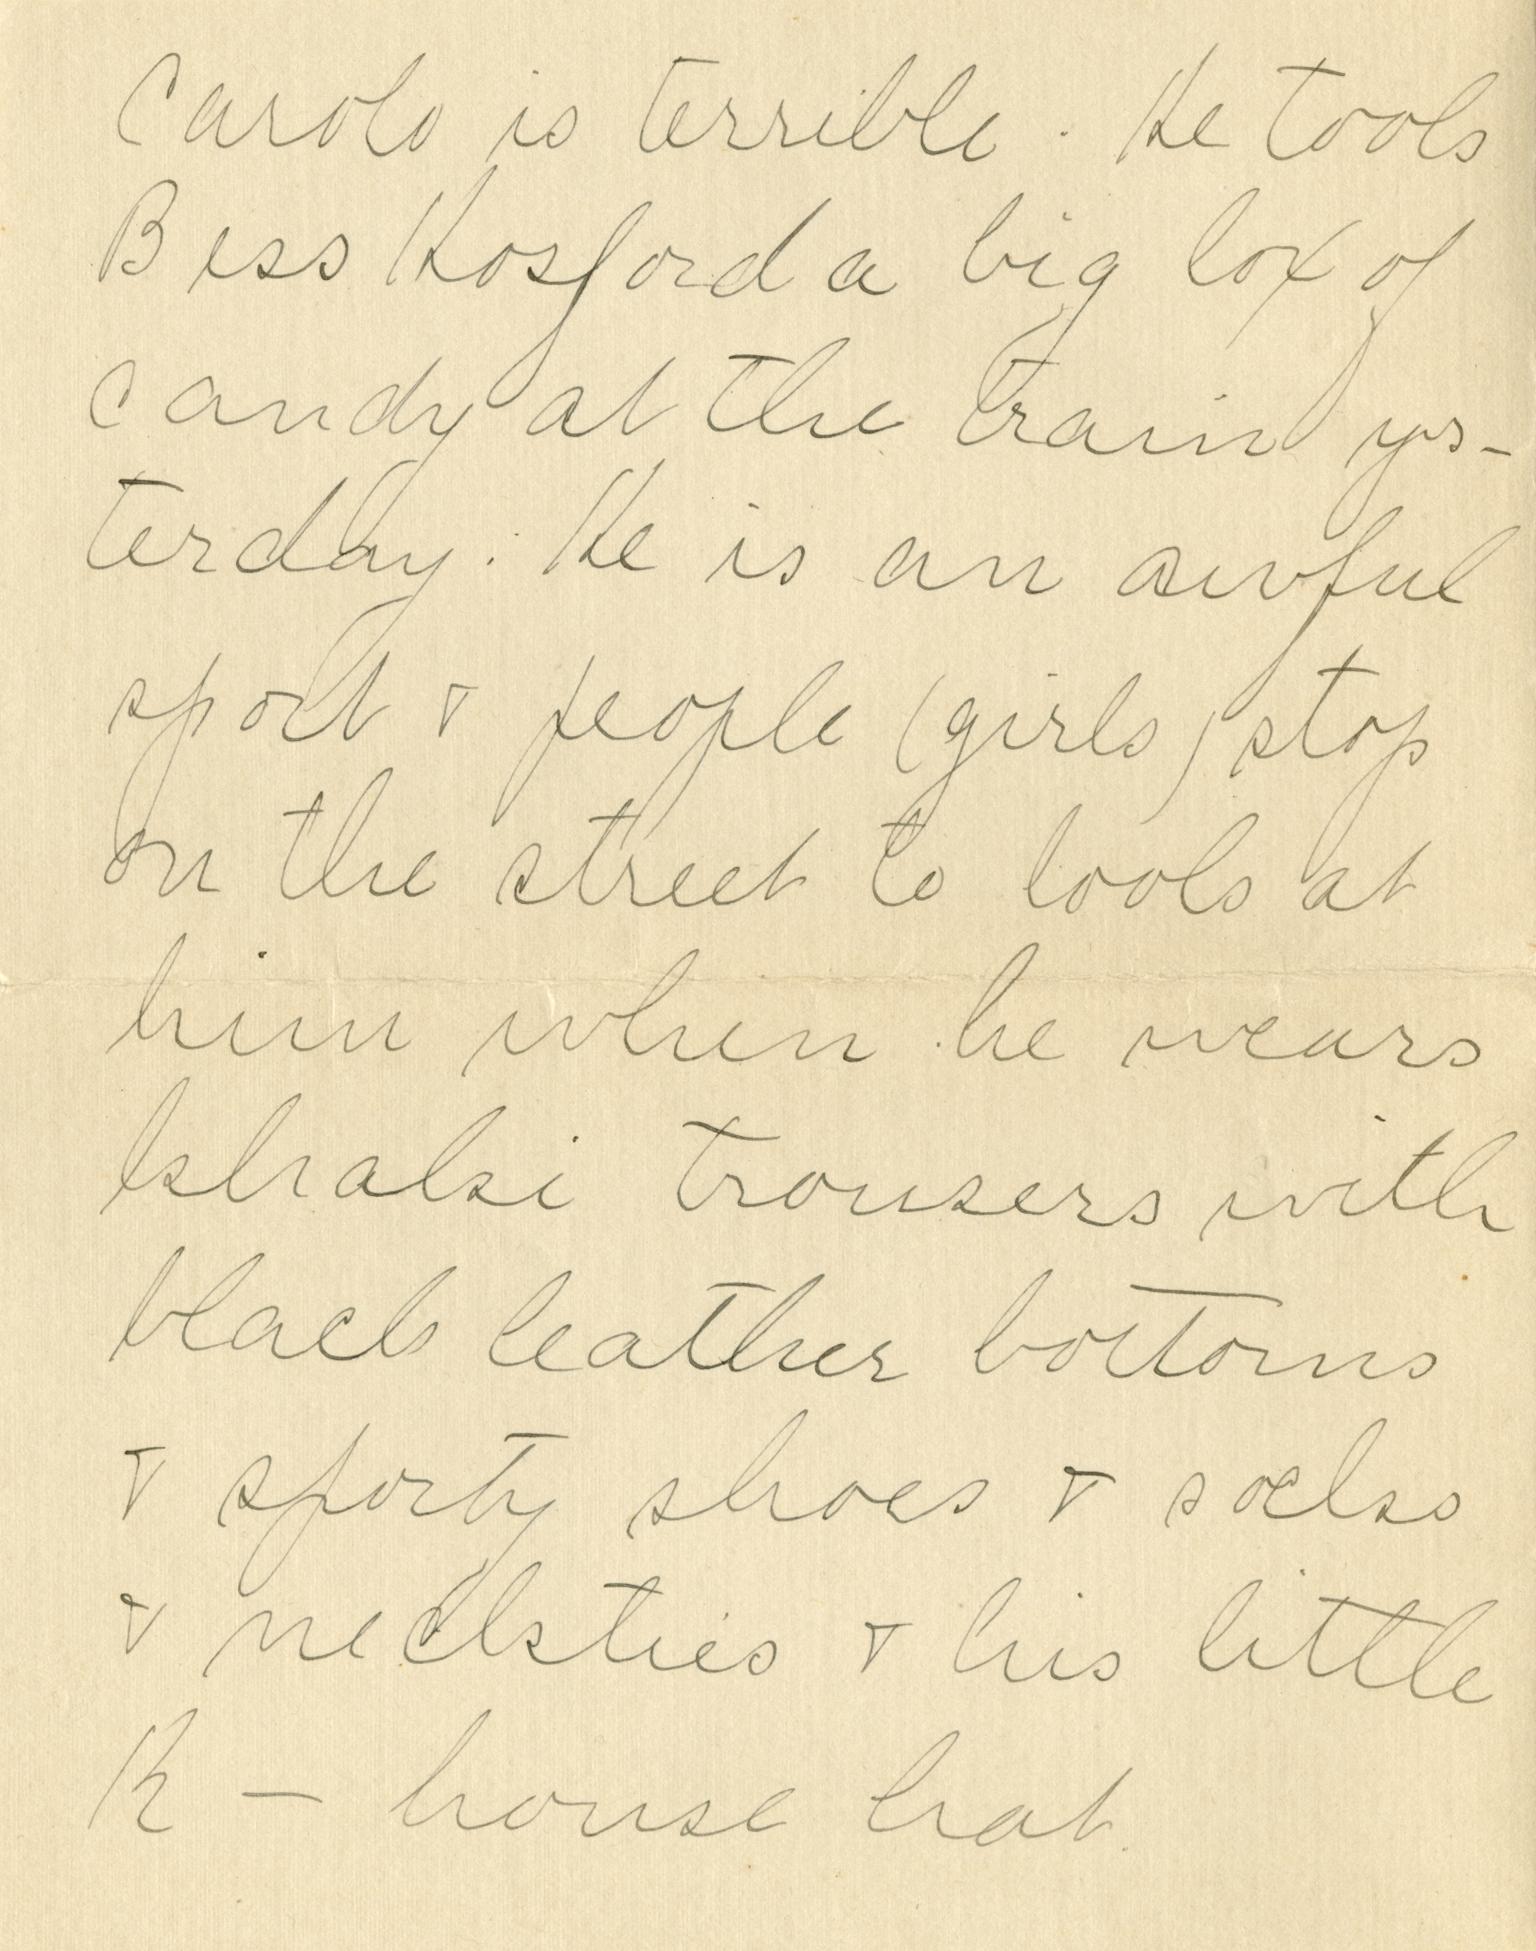 Carolo is terrible. He took
Bess Hosford a big box of
candy at the train yes-
terday. He is an awful
sport & people (girls) stop
on the street to look at
him when he wears
khaki trousers with
black leather bottoms
& sporty shoes & socks
& neckties & his little
R - house hat.